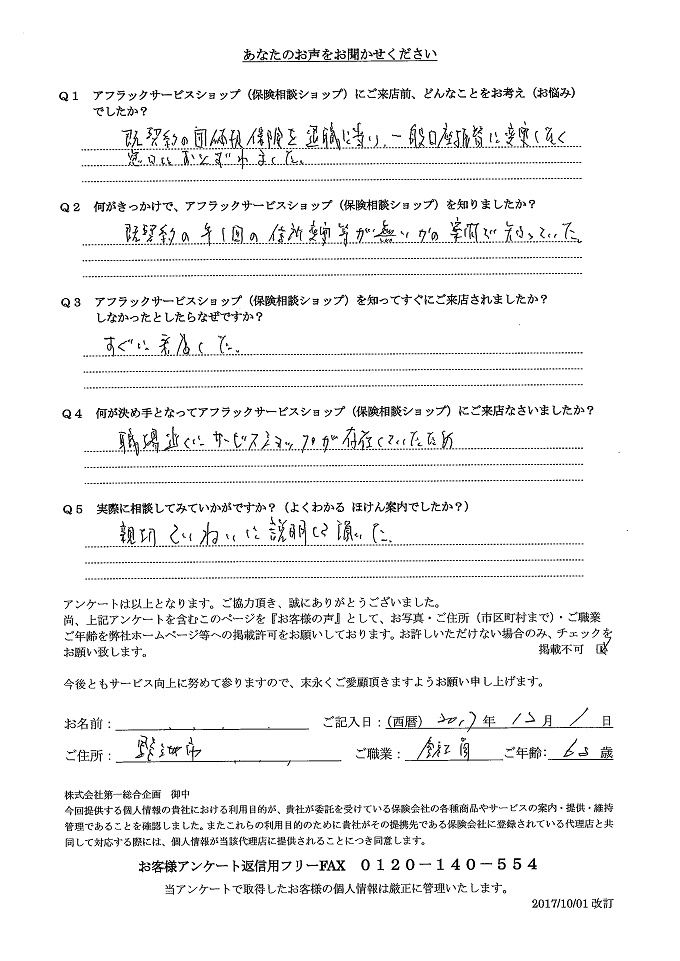 あなたのお声をお聞かせください
Q1 アフラックサービスショップ(保険相談ショップ)にご来店前、どんなことをお考え(お悩み)
でしたか?
既契約の団体扱保険を退職に当り、一般口座振替に変更したく
窓口におとずれました。
Q2 何がきっかけで、アフラックサービスショップ(保険相談ショップ)を知りましたか?
既契約の年1回の住所変更等が無いかの案内で知っていた。
Q3 アフラックサービスショップ(保険相談ショップ)を知ってすぐにご来店されましたか?
しなかったとしたらなぜですか?
すぐに来店した。
Q4 何が決め手となってアフラックサービスショップ(保険相談ショップ)にご来店なさいましたか?
職場近くにサービスショップが存在していたため
Q5 実際に相談してみていかがですか?(よくわかる ほけん案内でしたか?)
親切ていねいに説明して頂いた。
アンケートは以上となります。ご協力頂き、誠にありがとうございました。
尚、上記アンケートを含むこのページを『お客様の声』として、お写真・ご住所(市区町村まで)・ご職業
ご年齢を弊社ホームページ等への掲載許可をお願いしております。お許しいただけない場合のみ、チェックを
お願い致します。 掲載不可
今後ともサービス向上に努めて参りますので、末永くご愛顧頂きますようお願い申し上げます。
お名前: ご記入日:(西暦) 2017年 12月 1日
ご住所: 市 ご職業: 会社員 ご年齢: 63歳
株式会社第一総合企画 御中
今回提供する個人情報の貴社における利用目的が、貴社が委託を受けている保険会社の各種商品やサービスの案内・提供・維持
管理であることを確認しました。またこれらの利用目的のために貴社がその提携先である保険会社に登録されている代理店と共
同して対応する際には、個人情報が当該代理店に提供されることにつき同意します。
お客様アンケート返信用フリーFAX 0120-140-554
当アンケートで取得したお客様の個人情報は厳正に管理いたします。
2017/10/01 改訂